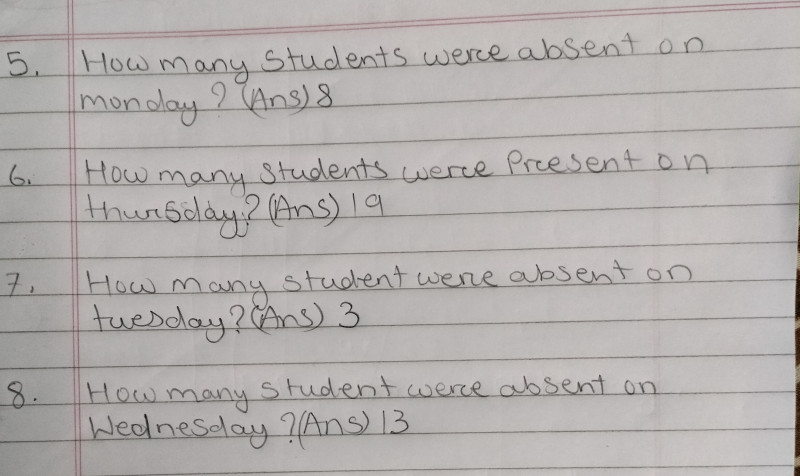 5. How many students were absent on
monday? (Ans) 8
6. How many students were Present on
thursday? (Ans) 19
7. How many student were absent on
tuesday? (Ans) 3
8. How many student were absent on
Wednesday? (Ans) 13